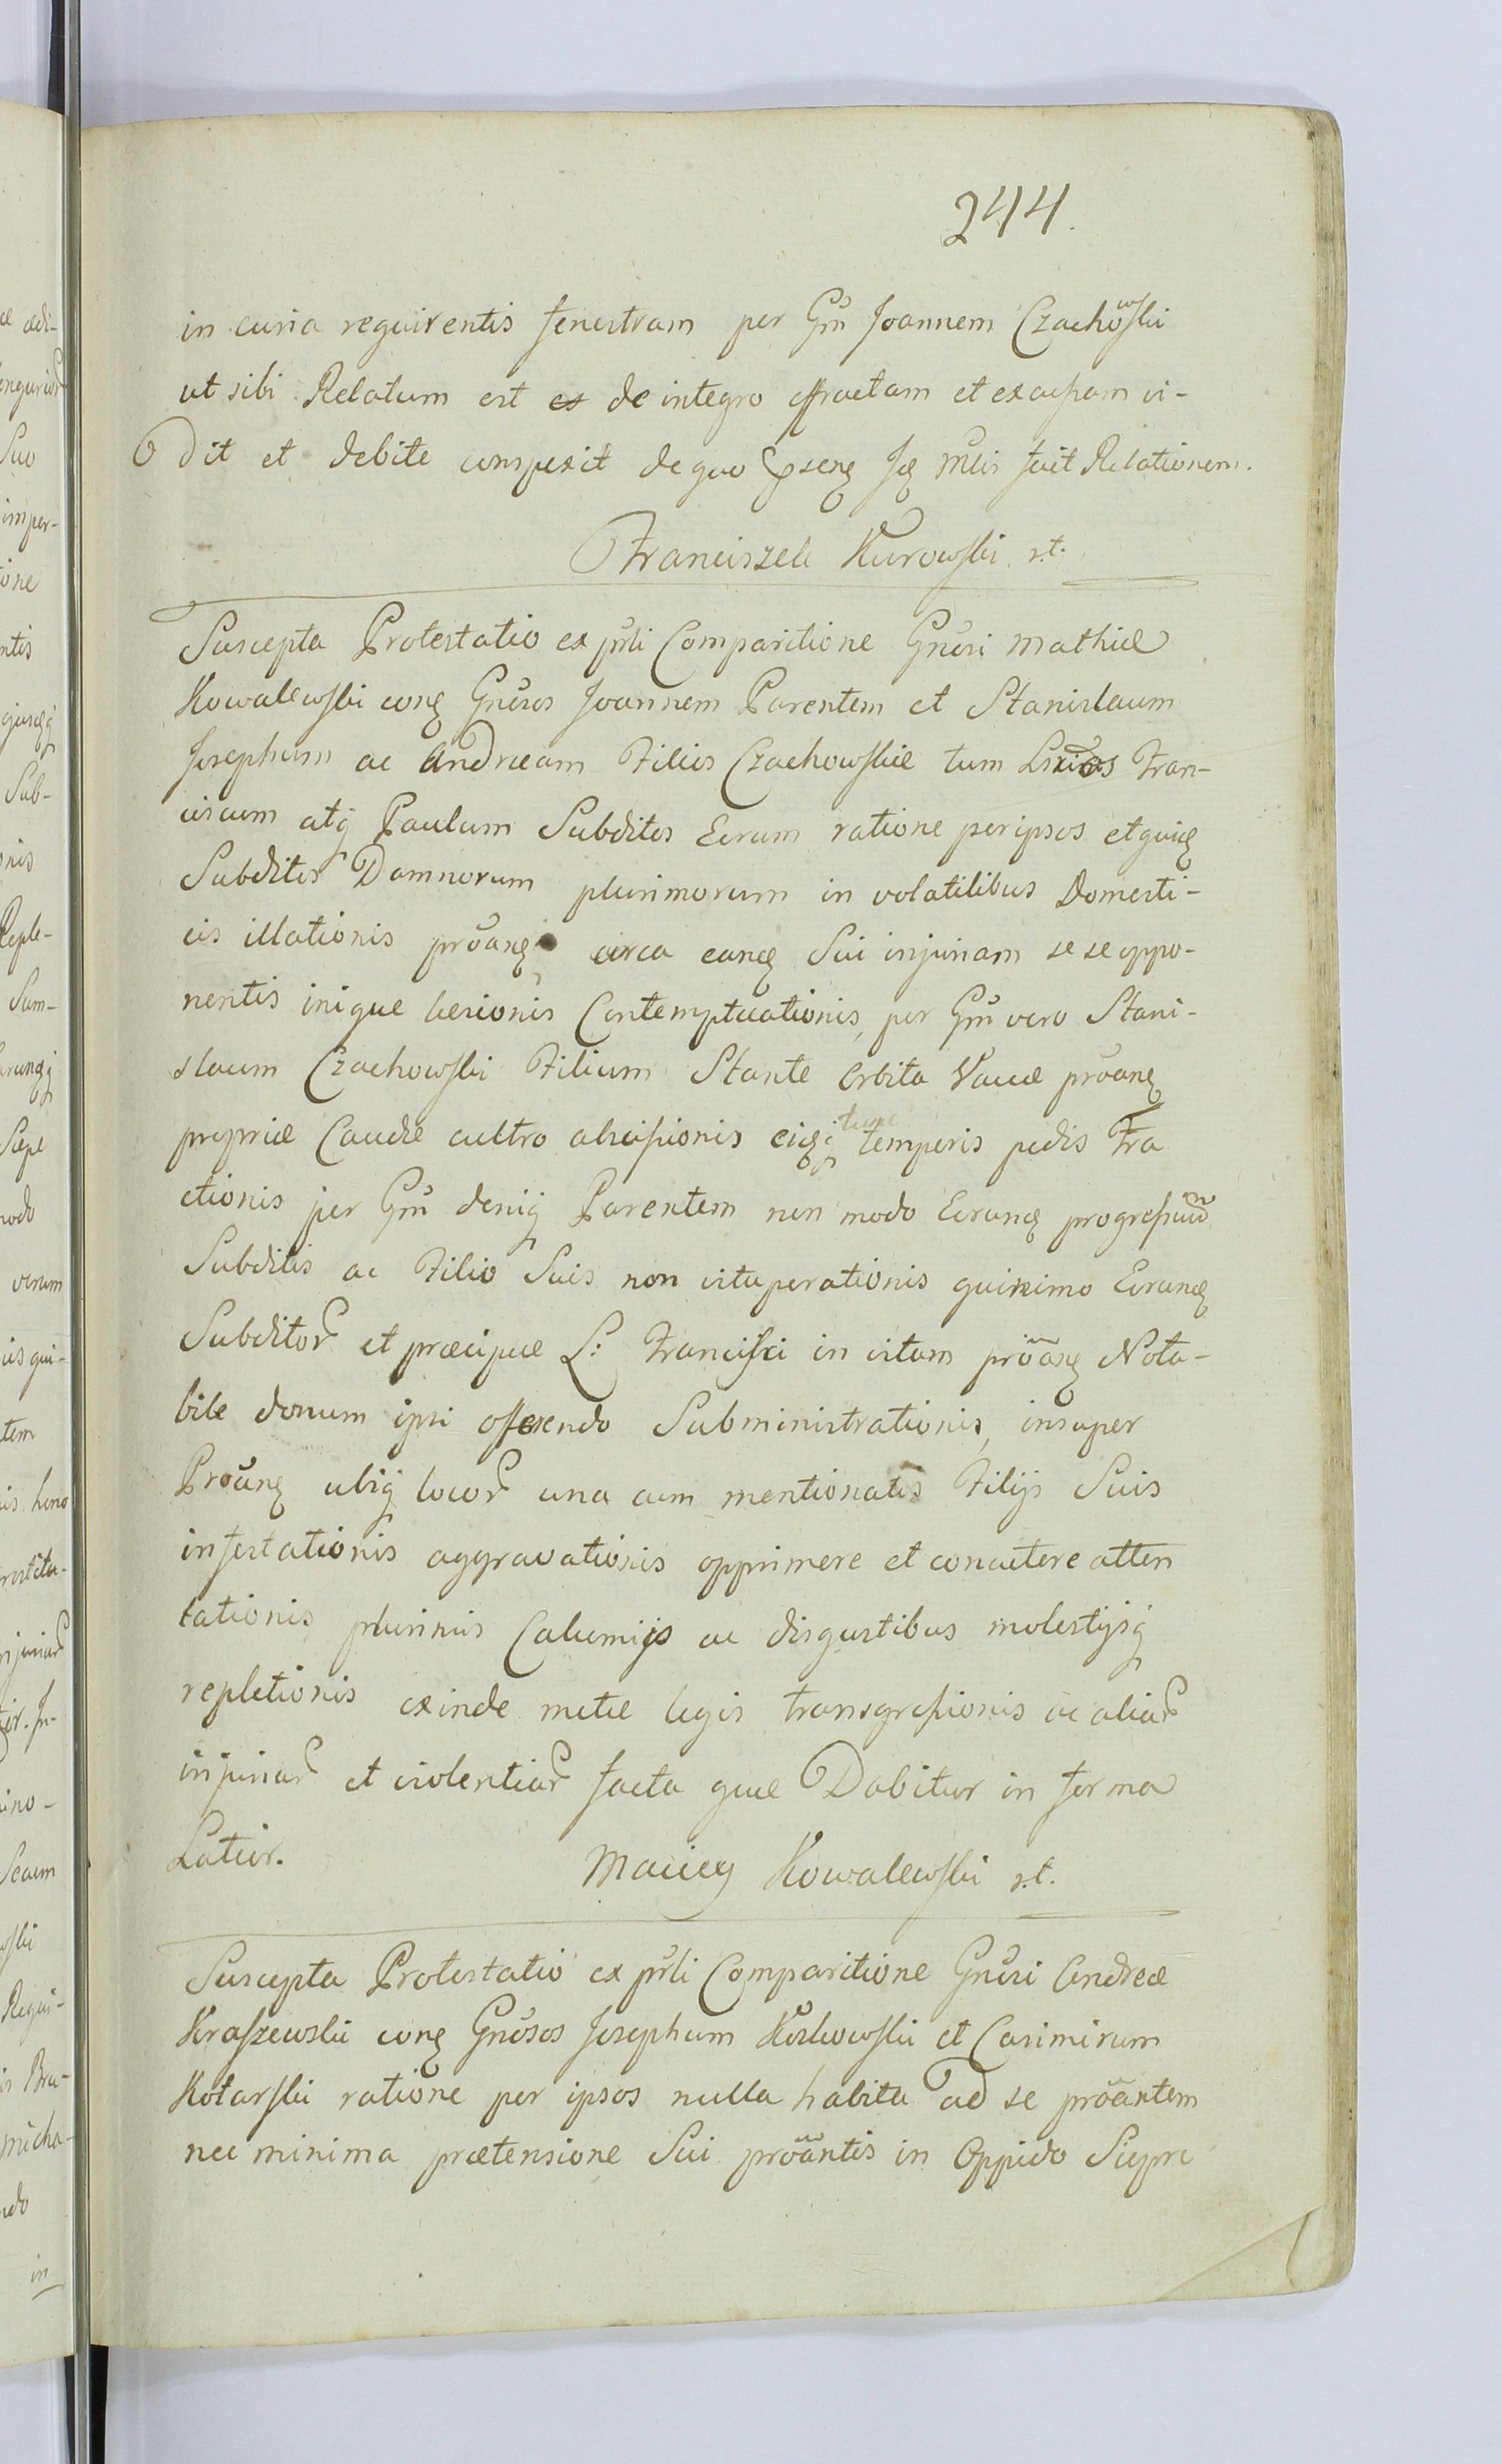 244.
in curia requirentis fenestram per Gm̃ Joannem Czachowski
ut sibi Relatum est de integro effractam et excussam vi-
dit et debite conspexit de quo fecit Relationem.
Franciszek Kurowski r.t.
Suscepta Protestatio ex prli Comparitione Gnũsi Mathiæ
Kowalewski Gnũsos Joannem Parentem et Stanislaum
Josephum ac Andræam Filios Czachowskie tum Fran-
ciscum atq Paulum Subditos Eorum ratione per ipsos
Subditos Damnorum plurimorum in volatilibus Domesti-
cis illationis circa Sui injuriam se se oppo-
nentis inique læsionis Contemptuationis, per Gm̃ vero Stani-
slaum Czachowski Filium Stante Orbita Vaccæ
propriæ Caudæ cultro abscissionis tunc temporis pedis Fra
ctionis per Gm̃ deniq Parentem non modo
Subditis ac Filio Suis non vituperationis quinimo
Subditor et præcipue L: Francisci in vitam Nota-
bile donum ipsi offerendo Subministrationis, insuper
ubiq locor una cum mentionatis Filijs Suis
infestationis aggravationis opprimere et concutere atten
tationis plurimis Calumijs ac disgustibus molestijsq
repletionis exinde metæ legis transgressionis ac aliar
injuriar et violentiar facta quæ Dabitur in forma
Latior.
Maciey Kowalewski r.t.
Suscepta Protestatio ex prli Comparitione Gnũsi Andreæ
Kraszewski Gnũsos Josephum et Casimirum
Kotarski ratione per ipsos nulla habita ad se prõantem
nec minima prætensione Sui prõantis in Oppido Siepre